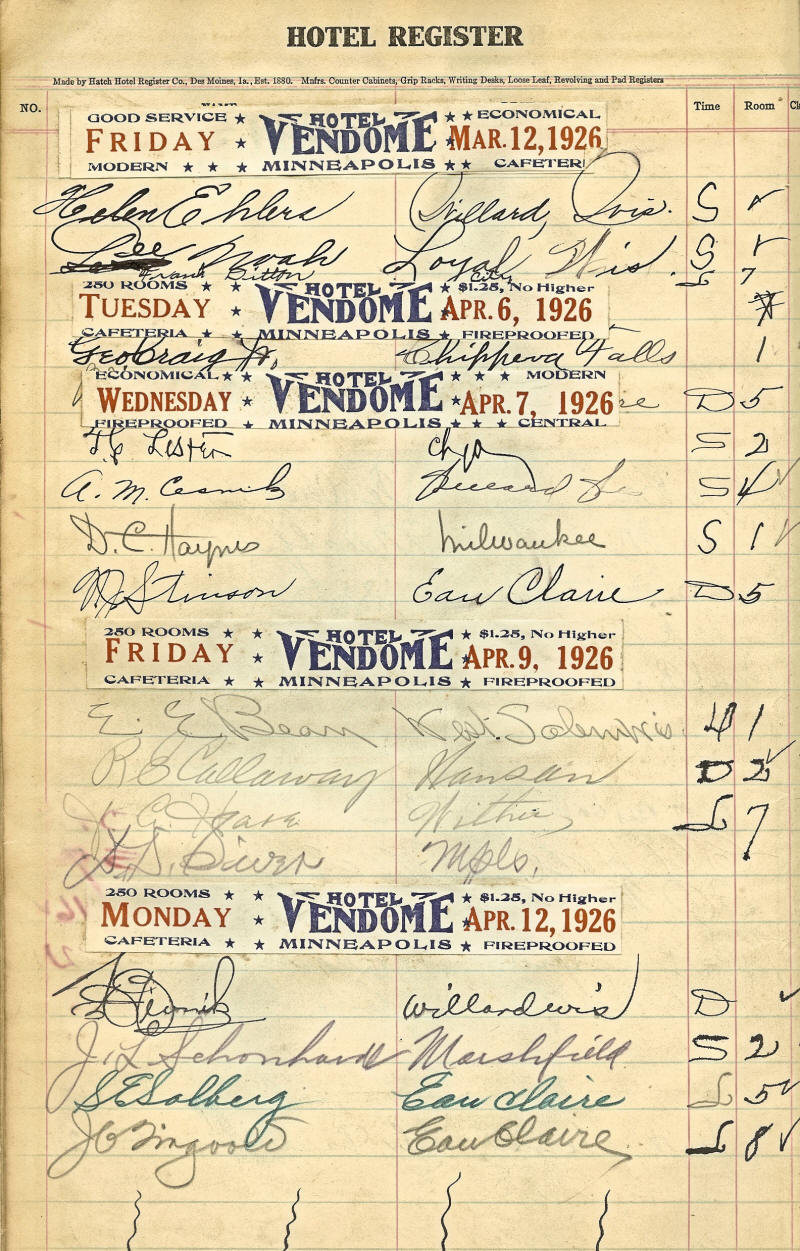 HOTEL REGISTER
Made by Hatch Hotel Register Co., Des Moines, Ia., Est. 1880. Mnfrs. Counter Cabinets, Grip Racks, Writing Desks, Loose Leaf, Revolving and Pad Registers
NO. Time Room
GOOD SERVICE ★ HOTEL ★★ ECONOMICAL
FRIDAY ★ VENDOME ★ MAR. 12, 1926
MODERN ★ ★ ★ MINNEAPOLIS ★★ CAFETER
Helen Ehlers Willard, Wis. S ✓
Dee Noah Loyal Wis. S ✓
Frank Bitton City L 7
250 ROOMS ★ HOTEL ★ $1.25, No Higher
TUESDAY ★ VENDOME ★ APR. 6, 1926
CAFETERIA ★ ★ MINNEAPOLIS ★ FIREPROOFED
Geo Craig Jr. Chippewa Falls 1
ECONOMICAL ★★ HOTEL ★ ★ ★ MODERN
WEDNESDAY ★ VENDOME ★ APR. 7, 1926 re D 5
FIREPROOFED ★ ★ MINNEAPOLIS ★ ★ ★ CENTRAL
Lester S 2
A. M. Cesnik S 4 ✓
D. C. Haynes Milwaukee S 1 ✓
Stinson Eau Claire D 5
250 ROOMS ★ ★ HOTEL ★ $1.25, No Higher
FRIDAY ★ VENDOME ★ APR. 9, 1926
CAFETERIA ★ ★ MINNEAPOLIS ★ FIREPROOFED
E. E. Beam West. Salem Wis. 4 1
R E Callaway Hansan D 2 ✓
L 7
Mpls.
250 ROOMS ★ ★ HOTEL ★ $1.25, No Higher
MONDAY ★ VENDOME ★ APR. 12, 1926
CAFETERIA ★ ★ MINNEAPOLIS ★ FIREPROOFED
Willard Wis D ✓
J. L Schonhardt Marshfield S 2 ✓
S E Solberg Eau Claire L 5 ✓
Eau Claire L 8 ✓